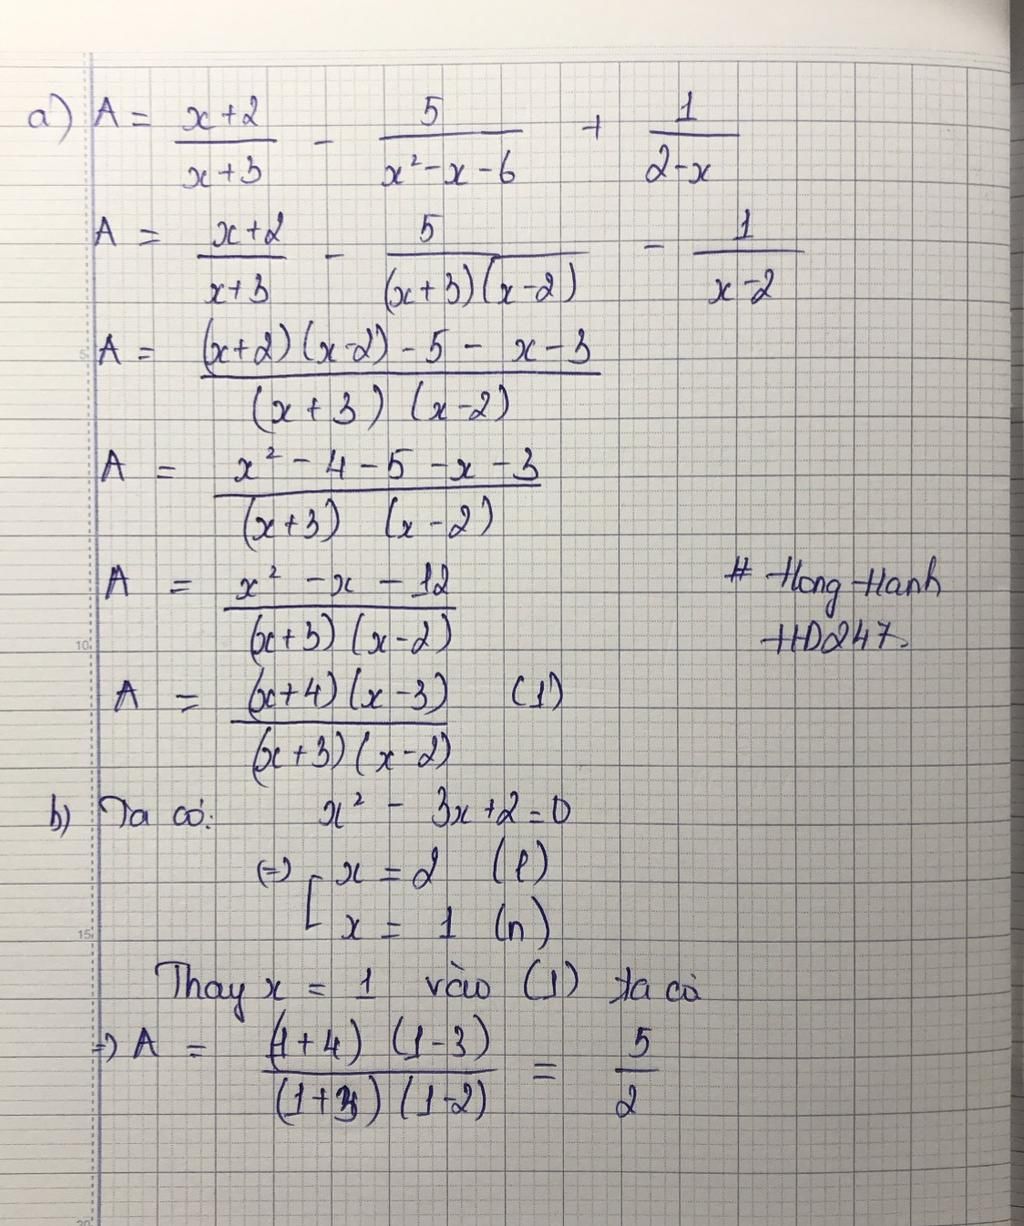 a) A = (x+2)/(x+3) - 5/(x² - x - 6) + 1/(2-x)
A = (x+2)/(x+3) - 5/((x+3)(x-2)) - 1/(x-2)
A = ((x+2)(x-2) - 5 - x - 3)/((x+3)(x-2))
A = (x² - 4 - 5 - x - 3)/((x+3)(x-2))
A = (x² - x - 12)/((x+3)(x-2))
# Hong Hanh
HD247.
A = ((x+4)(x-3))/((x+3)(x-2)) (1)
b) Ta có: x² - 3x + 2 = 0
(=) [ x = 2 (l)
x = 1 (n)
Thay x = 1 vào (1) ta có
=) A = ((1+4)(1-3))/((1+3)(1-2)) = 5/2
5
10
15
20